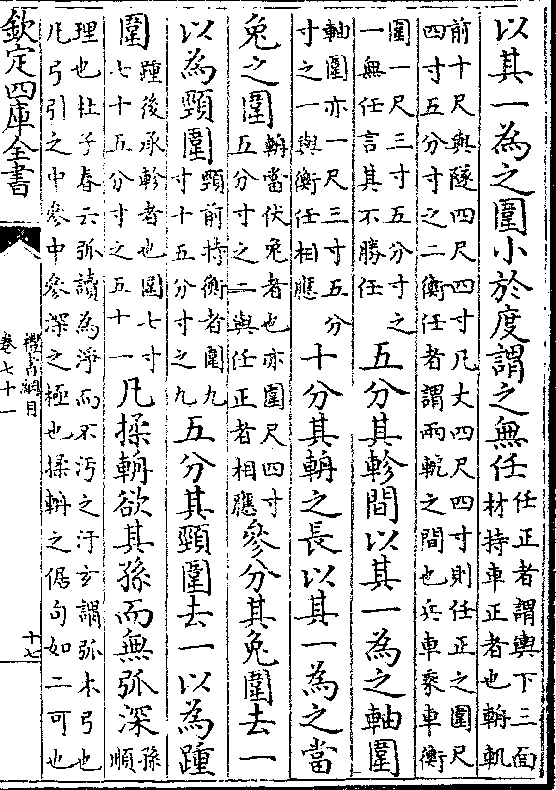 以其一為之圍小於度謂之無任
任正者謂輿下三面
材持車正者也輈軓
前十尺與隧四尺四寸凡丈四尺四寸則任正之圍尺
四寸五分寸之二衡任者謂兩軛之間也兵車乘車衡
圍一尺三寸五分寸之
一無任言其不勝任
五分其軫間以其一為之軸圍
軸圍亦一尺三寸五分
寸之一與衡任相應
十分其輈之長以其一為之當
兔之圍
輈當伏兔者也亦圍尺四寸
五分寸之二與任正者相應
參分其兔圍去一
以為頸圍
頸前持衡者圍九
寸十五分寸之九
五分其頸圍去一以為踵
圍
踵後承軫者也圍七寸
七十五分寸之五十一
凡揉輈欲其孫而無弧深
孫
順
理也杜子春云弧讀為淨而不汚之汙玄謂弧木弓也
凡弓引之中參中參深之極也揉輈之倨句如二可也
欽定四庫全書
禮書綱目
卷七十一
十七